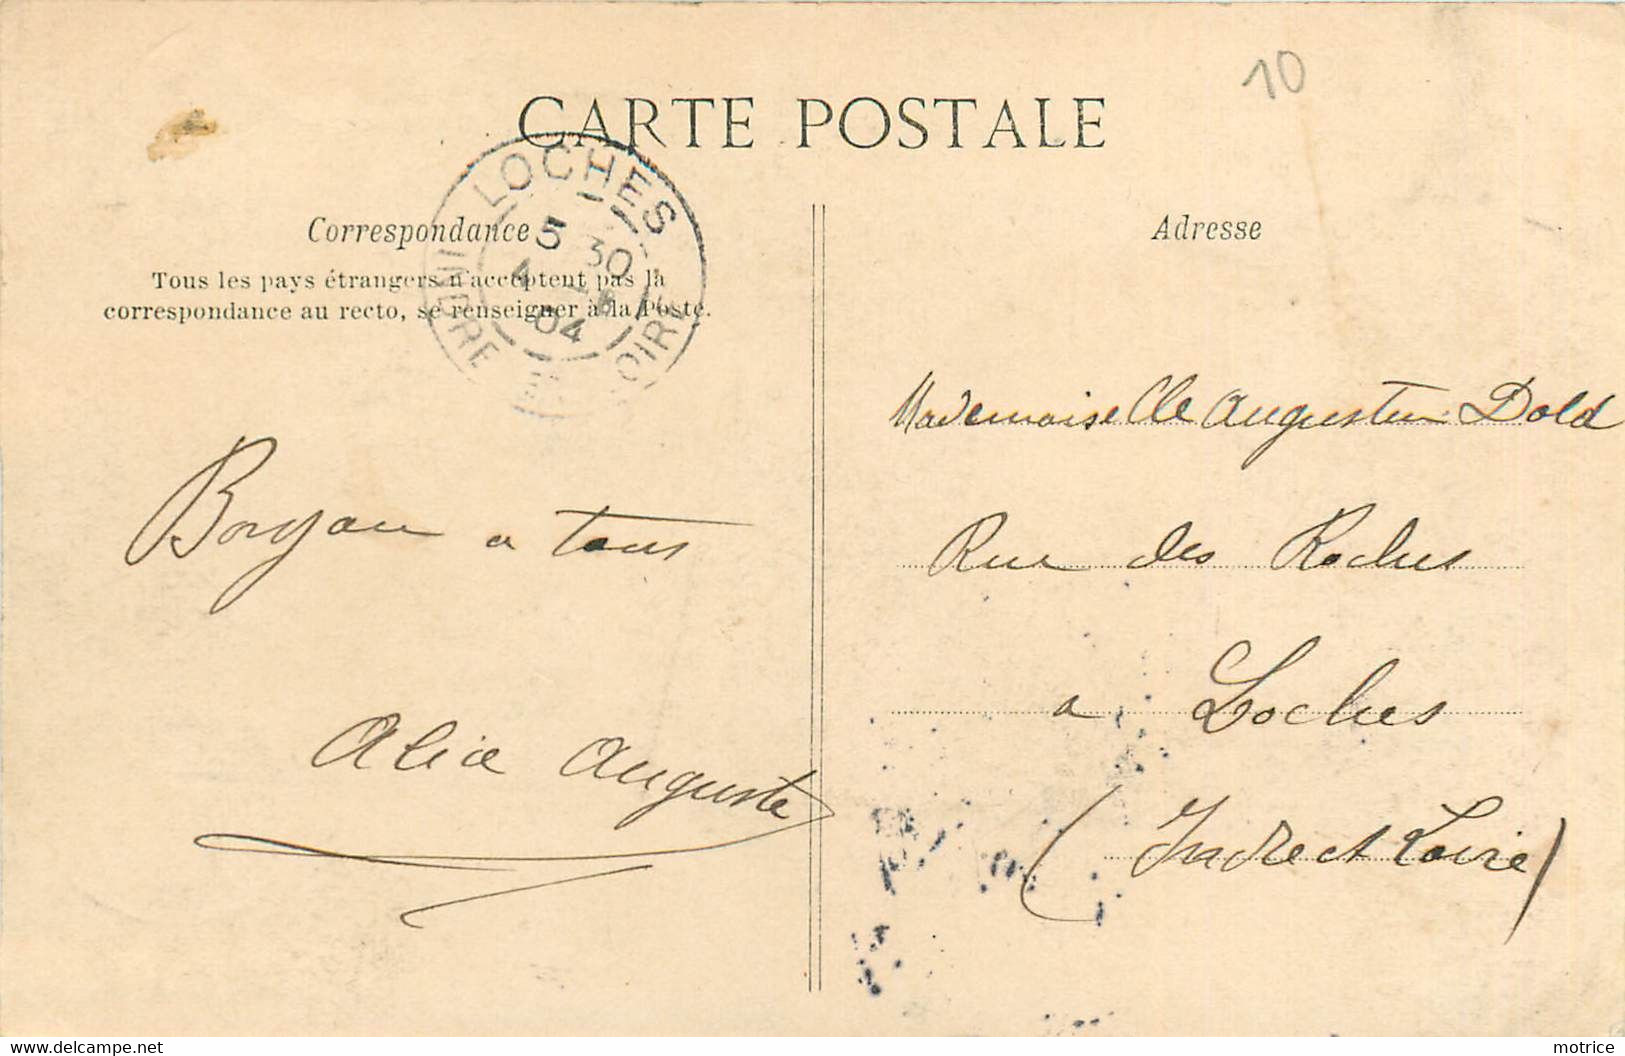 10
CARTE POSTALE
LOCHES
INDRE ET LOIRE
5 30
4
04
Correspondance
Tous les pays étrangers n'acceptent pas la
correspondance au recto, se renseigner à la Poste.
Bonjour a tous
Alice Auguste
Adresse
Mademoiselle Augustine Dold
Rue des Roches
a Loches
(Indre et Loire)
www.delcampe.net
motrice